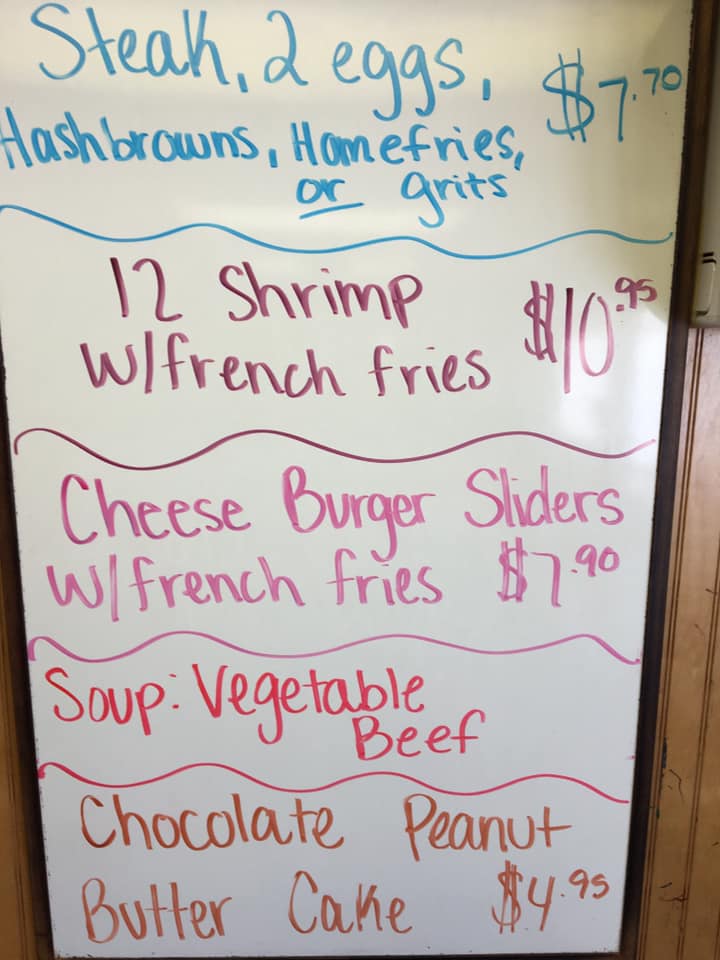 Steak, 2 eggs, $7.70
Hashbrowns, Homefries,
or grits
12 Shrimp $10.95
w/french fries
Cheese Burger Sliders
w/french fries $7.90
Soup: Vegetable
Beef
Chocolate Peanut
Butter Cake $4.95